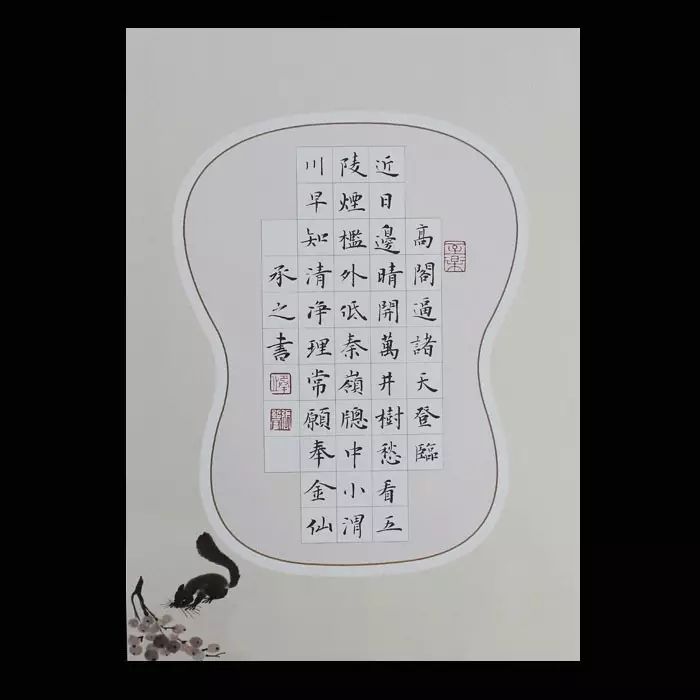 高閣逼諸天登臨
近日邊晴開萬井樹愁看五
陵煙檻外低秦嶺牕中小渭
川早知清净理常願奉金仙
承之書